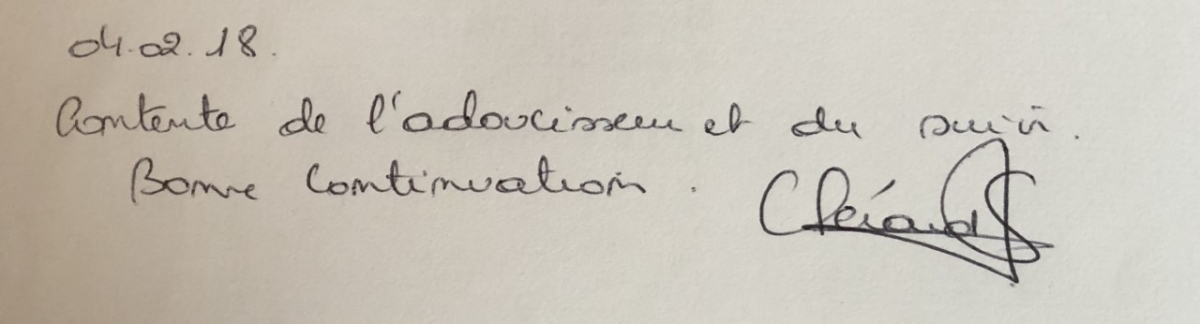 04.02.18.
Contente de l'adoucisseur et du suivi.
Bonne Continuation.